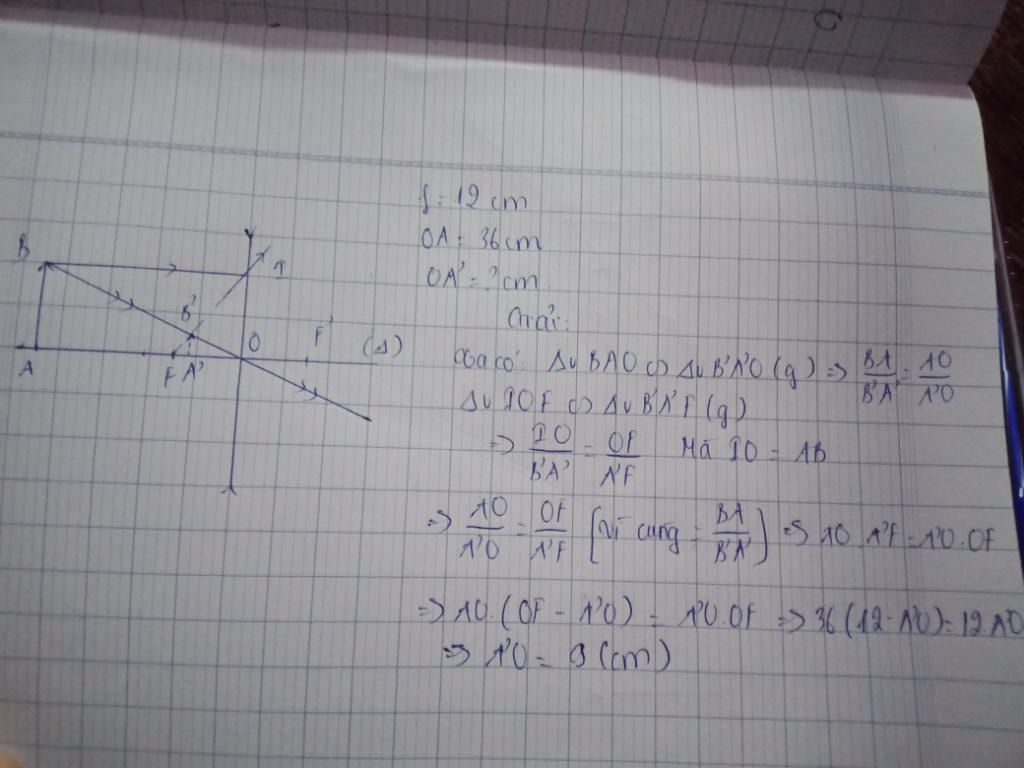 f = 12 cm
OA = 36 cm
OA' = ? cm
Giải:
B
I
B'
O
F
(Δ)
A
F A'
Ta có: Δv BAO ∽ Δv B'A'O (g) => BA/B'A' = AO/A'O
Δv IOF ∽ Δv B'A'F (g)
=> IO/B'A' = OF/A'F Mà IO = AB
=> AO/A'O = OF/A'F [Vì cùng = BA/B'A'] => AO. A'F = A'O.OF
=> AO.(OF - A'O) = A'O.OF => 36(12-A'O)=12.A'O
=> A'O = 9 (cm)